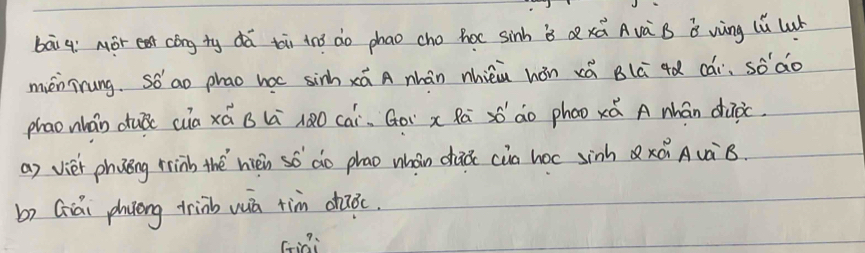 bài 4: Một công ty đã tài trợ áo phao cho học sinh ở 2 xã A và B ở vùng lũ lụt
miền Trung. Số áo phao học sinh xã A nhận nhiều hơn xã B là 42 cái. số áo
phao nhận được của xã B là 120 cái. Gọi x là số áo phao xã A nhận được.
a) viết phương trình thể hiện số áo phao nhận được của học sinh 2 xã A và B.
b) Giải phương trình vừa tìm được.
Giải